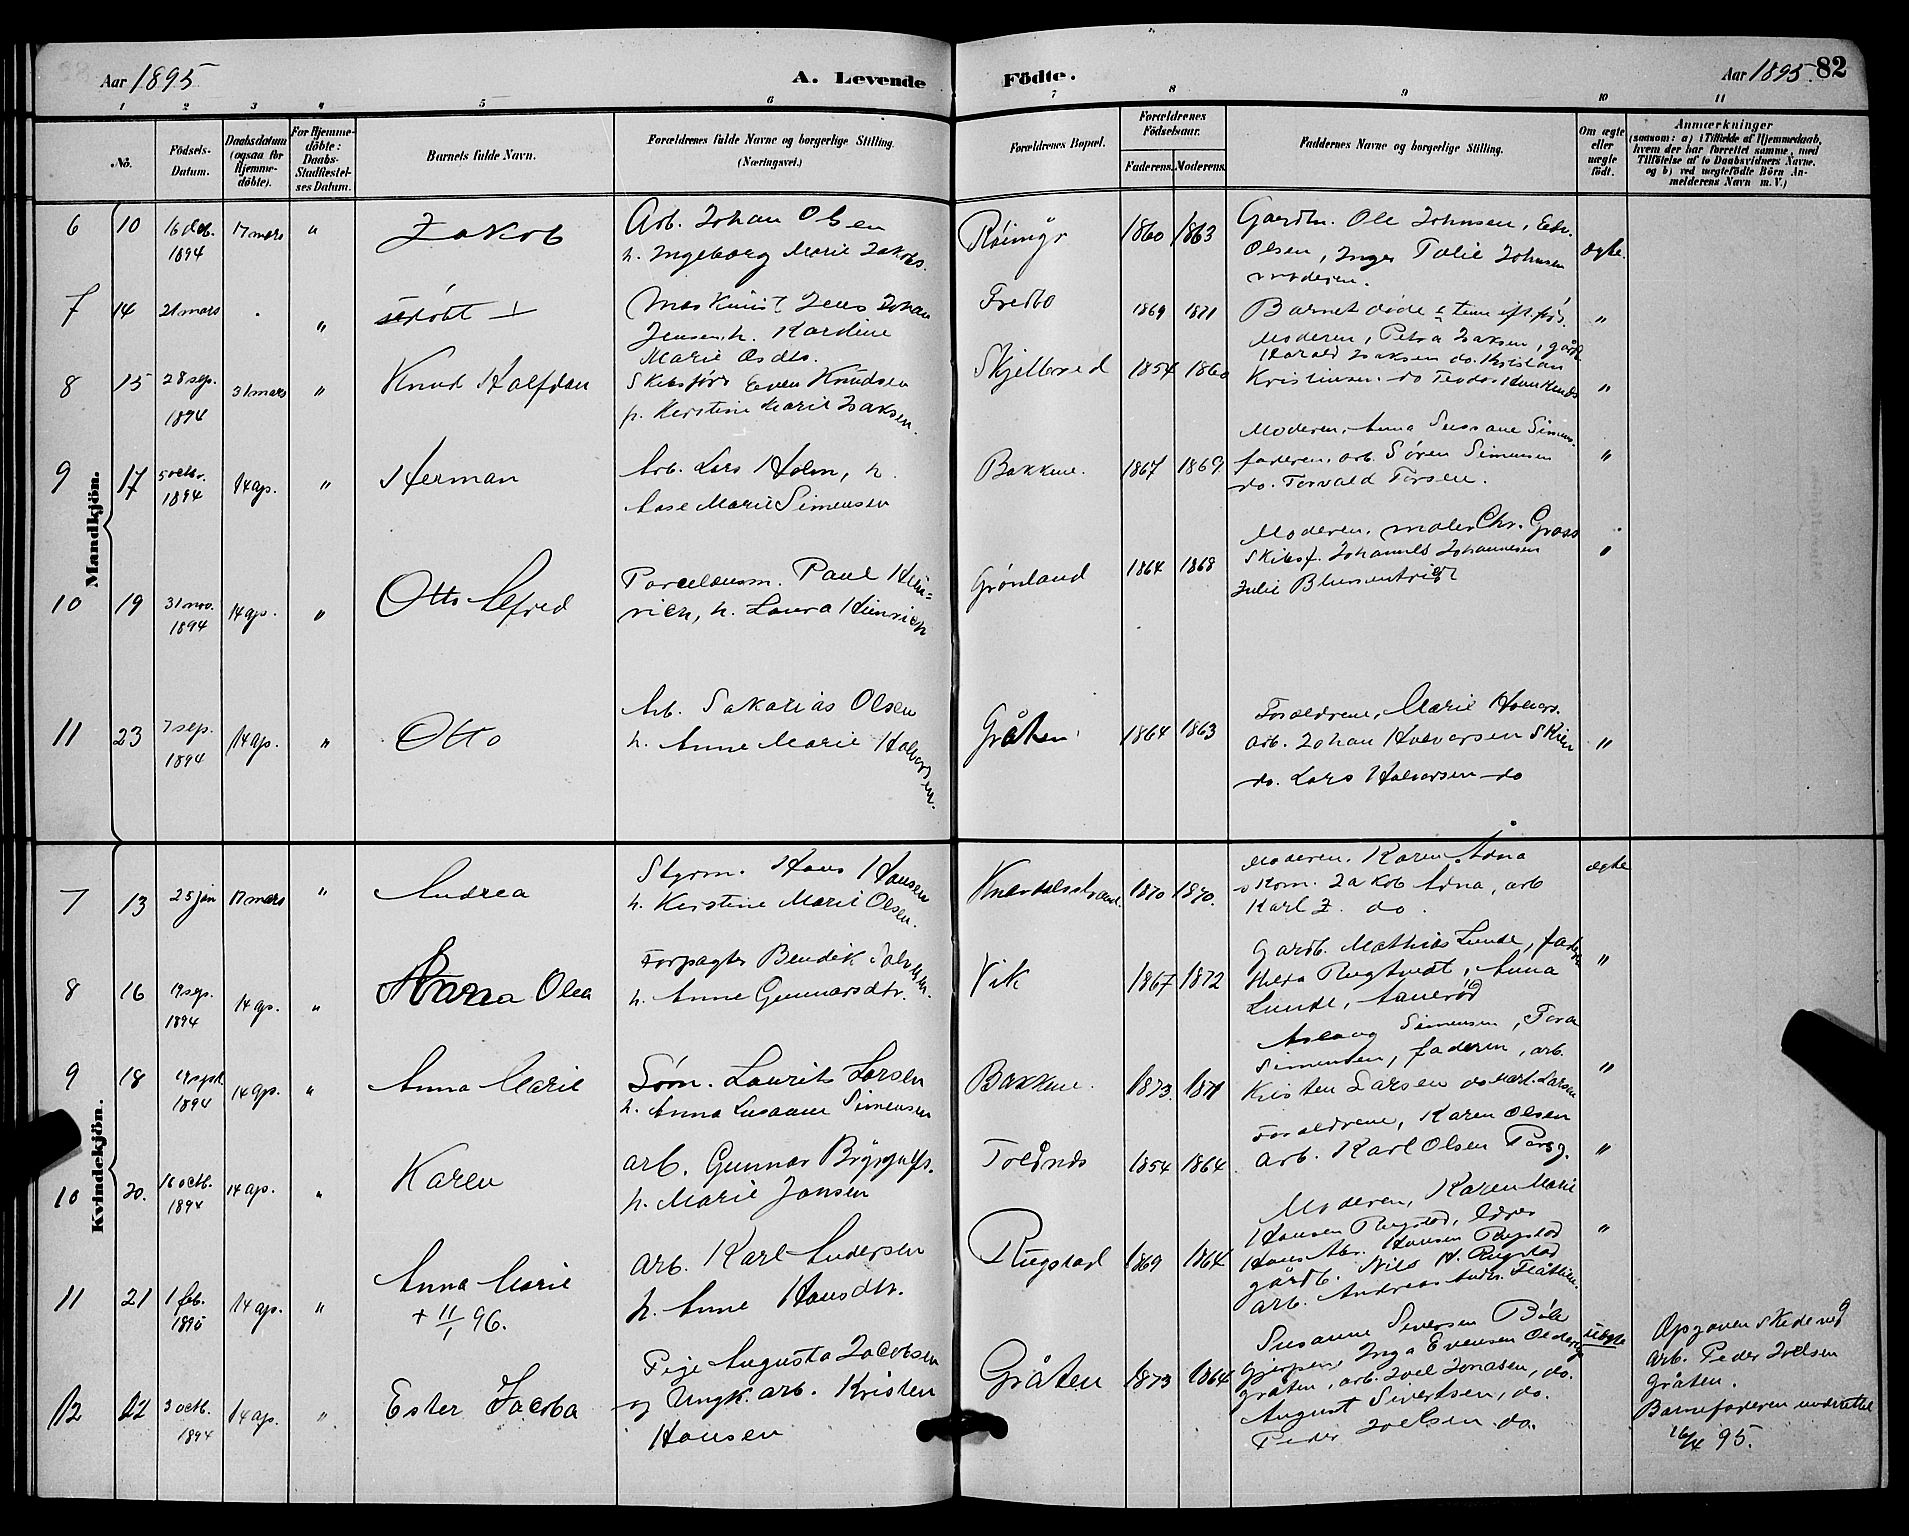 Aar 1895
A. Levende
Födte.
Aar 1895. 82
1 2 3 4 5 6 7 8 9 10 11
No.
Födsels-
Datum.
Daabsdatum
(ogsaa for
Hjemme-
döbte).
For Hjemme-
döbte:
Daabs-
Stadfæstel-
ses Datum.
Barnets fulde Navn.
Forældrenes fulde Navne og borgerlige Stilling.
(Næringsvei.)
Forældrenes Bopæl.
Forældrenes
Födselsaar.
Faderens. Moderens.
Faddernes Navne og borgerlige Stilling.
Om ægte
eller
uægte
födt.
Anmærkninger
(saasom: a) i Tilfælde af Hjemmedaab,
hvem der har forrettet samme, med
Tilföielse af to Daabsvidners Navne.
og b) ved uægtefödte Börn An-
melderens Navn m. V.)
Mandkjön.
6 10 16 deb. 1894 17 mars " Jakob
Arb. Johan Olsen
h. Ingeborg Marie Jakobs.
1860 1863
Gaardbr. Ole Johnsen, Edv.
Olsen, Inger Talie Johnsen
moderen.
ægte.
7 14 21 mars . "
Maskinist Jens Johan
Jensen, h. Kardine
Marie Osdtr.
Fredbo 1869 1871
Barnet døde
"
8 15 28 sep. 1894 31 mars " Knud Halfdan
Skibsfører Even Knudsen
h. Kerstine Marie Isaksen.
Skjelbred 1854 1860
Moderen, Petra Isaksen, gårdb
Harald Isaksen do. Kristian
Kristiansen. do
"
9 17 5 octbr. 1894 14 ap. " Herman
Arb. Lars Holm, h.
Aase Marie Simensen
Bakkene. 1867 1869.
Moderen, Anna Susane Simens.
faderen, arb. Søren Simensen
do. Torvald Torsen.
"
10 19 31 nov. 1894 14 ap. " Otto Alfred
Porcelænsm. Paul Hein=
rich, h. Laura Heinrich
Grønland 1864 1868
Moderen, maler Chr. Grass
Skibsf. Johannes Johannesen
Julie
"
11 23 7 sep. 1894 14 ap. " Otto
Arb. Sakarias Olsen
h. Anne Marie Halvorsen.
Gråten 1864 1863
Forældrene, Marie Halvors.
arb. Johan Halvorsen Skien
do. Lars Halvorsen do
"
Kvindekjön.
7 13 25 jan 17 mars " Andrea
Styrm. Hans Hansen
h. Kerstine Marie Olsen.
1870 1870.
Moderen, Karen Ådna
skom. Jakob Ådna, arb
Karl J. do.
ægte
8 16 19 sep. 1894 14 ap. " Olea
Forpagter Bendik
h. Anne Gunnarsdtr.
Vik 1867 1872
Gardb. Mathias Lunde, faderen
Rugtvedt, Anna
Lunde, Aanerød
"
9 18 19 sept 1894 14 ap. " Anna Marie
Søm. Laurits Larsen
h. Anna Susanne Simensen
Bakkene. 1873. 1871
Aslaug Simensen, Tora
Simensen, faderen, arb.
Kristen Larsen do Karl Larsen
"
10 20. 16 octb. 1894 14 ap. " Karen
arb. Gunnar Brygjulfs.
h. Marie Jansen
1854 1864.
Forældrene, Karen Olsen
Arb. Karl Olsen Porsg.
"
11 21 1 feb. 1895 14 ap. " Anna Marie
+ 11/1 96.
arb. Karl Andersen
h. Anne Hansdtr.
Rugstad 1869 1864
Moderen, Karen Marie
Hansen Rugstad,
Hans Abr. Hansen Rugstad
gårdb. Nils H. Rugstad
arb. Andreas Andr. Flåtten.
"
12 22 3 octb. 1894 14 ap. " Ester Jacoba
Pige Augusta Jacobsen
og Ungk. arb. Kristen
Hansen
Gråten 1873 1864
Susanne Seversen Bøle
Gjerpen, Inga Evensen
gråten, arb. Joel Jonasen, do.
August Sivertsen, do.
Peder Joelsen do.
uægte
Opgaven skede ved
arb. Peder Joelsen
Gråten.
Barnefaderen underrettet
16/4 95.